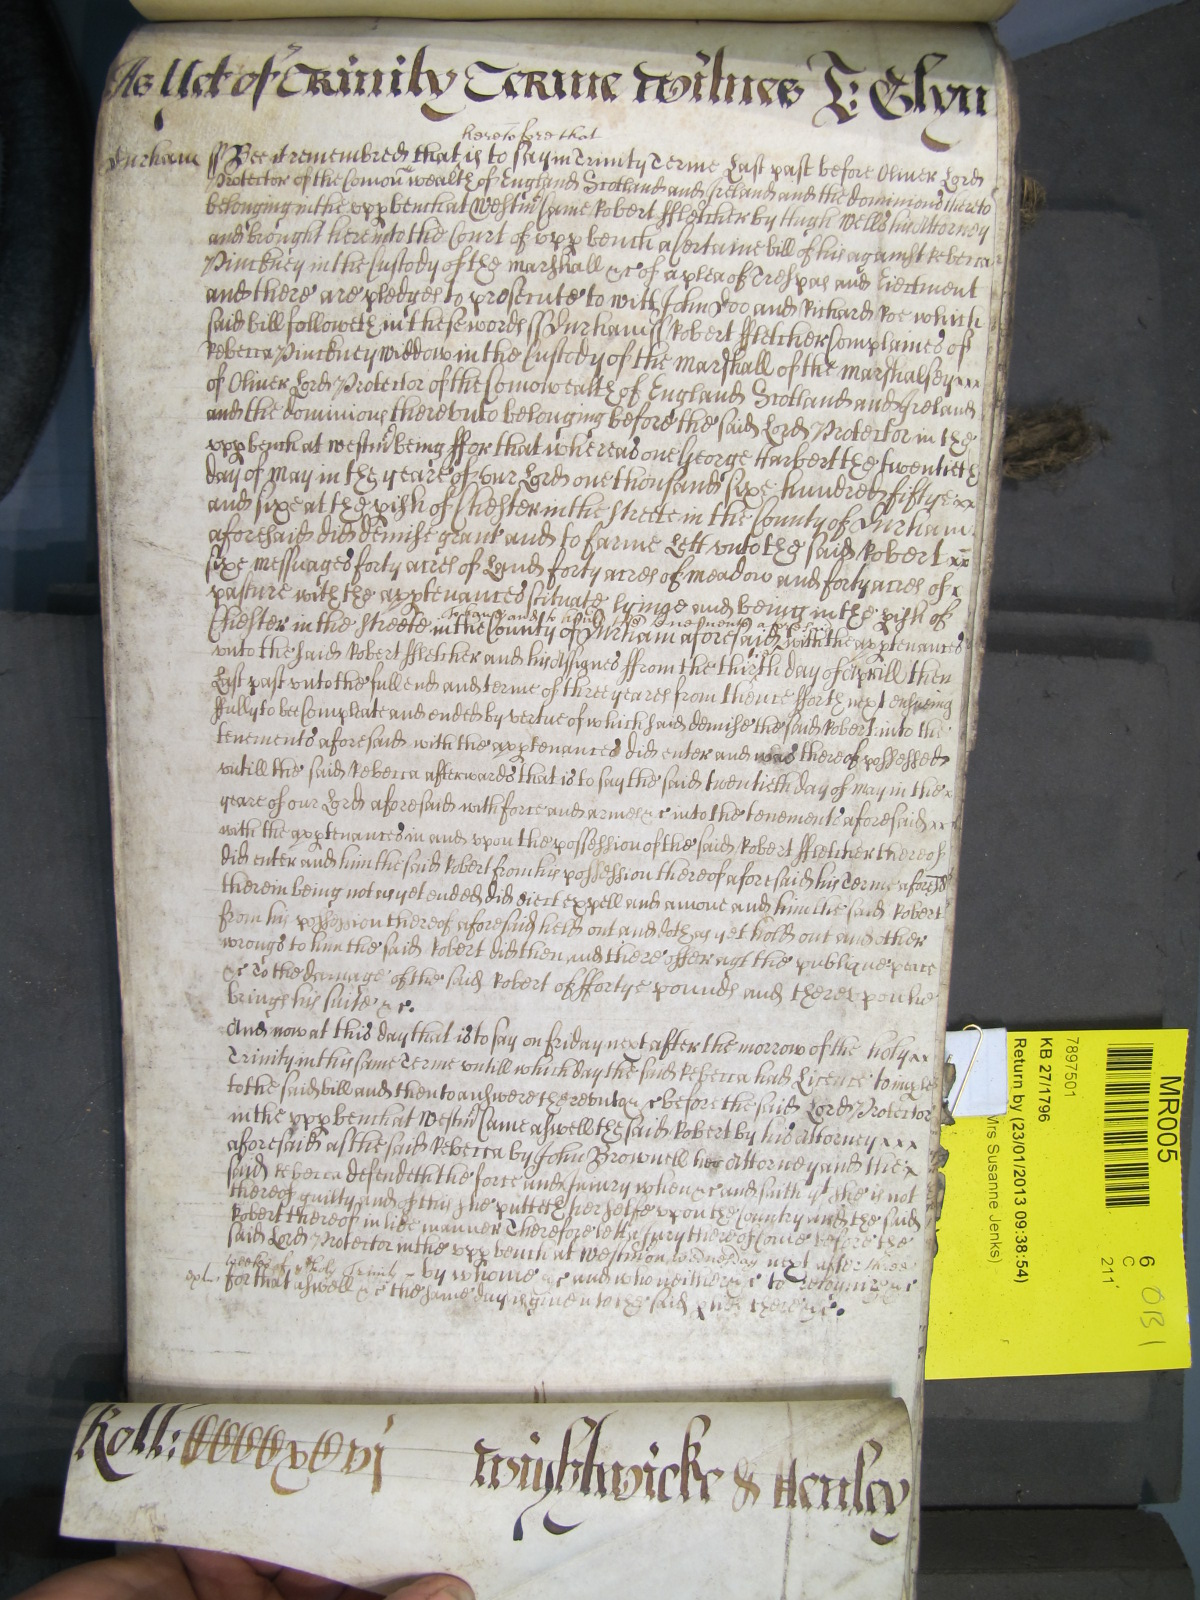 As Yet of Trinity Terme Witnes J: Glyn
heretofore that
Durham ss Bee it remembred that is to say in Trinity Terme Last past before Oliver Lord
Protector of the Comon wealth of England Scotland and Ireland and the dominions thereto
belonging in the upp bench at Westm Came Robert ffletcher by Hugh Wells his Attorney
and brought here into the Court of upp bench a Certaine bill of his against Rebecca
Pinckney in the Custody of the marshall &c of a plea of Trespas and Eiectment
and there are pledges to prosecute to witt John Doo and Richard Roe which
said bill followeth in these words ss Durham ss Robert ffletcher Complaines of
Rebecca Pinckney widdow in the Custody of the marshall of the marshalsey
of Oliver Lord Protector of the Comonwealth of England Scotland and Ireland
and the dominions thereunto belonging before the said Lord Protector in the
upp bench at westm being ffor that whereas one George Harbert the twentieth
day of May in the yeare of our Lord one thousand sixe hundred fiftye
and sixe at the pish of Chester in the streete in the County of Durham
aforesaid did demise grant and to farme Lett unto the said Robert
sixe messuages forty acres of Land forty acres of meadow and forty acres of
pasture with the apptenances scituate lyinge and being in the pish of
Chester in the streete in the County of Durham aforesaid with the apptenances
to have and to hold the tenements aforesaid
unto the said Robert ffletcher and his Assignes ffrom the thirth day of Aprill then
Last past unto the full end and terme of three yeares from thence fforth next ensueing
ffully to bee Compleate and ended by vertue of which said demise the said Robert into the
tenements aforesaid with the apptenances did enter and was thereof possessed
untill the said Rebecca afterwards that is to say the said twentieth day of May in the
yeare of our Lord aforesaid with force and armes &c into the tenements aforesaid
with the apptenances in and upon the possession of the said Robert ffletcher thereof
did enter and him the said Robert from his possession thereof aforesaid his Terme aforesd
therein being not as yet ended did eiect expell and amove and him the said Robert
from his possession thereof aforesaid held out and doth as yet hold out and other
wrongs to him the said Robert did then and there offer agt the publique peace
&c To the damage of the said Robert of ffortye pounds and thereupon he
brings his suite &c.
And now at this day that is to say on friday next after the morrow of the holy
Trinity in this same Terme untill which day the said Rebecca had Licence to imple
to the said bill and then to answere thereunto &c before the said Lord Protector
in the upp bench at Westm Came aswell the said Robert by his attorney
aforesaid as the said Rebecca by John Brownell her Attorney and the
said Rebecca defendeth the force and Iniury when &c and saith yt she is not
thereof guilty and of this she putteth her selfe upon the Country and the said
Robert thereof in like manner Therefore lett a Jury thereof Come before the
said Lord Protector in the upp bench at Westm on wednesday next after three
weekes of the holy Trinity by whome &c and who neither &c to recognize &c
for that aswell &c the same day is given to the said pties there &c.
Roll:
Wightwicke & Henley
MR005
7897501
KB 27/1796
Return by (23/01/2013 09:38:54)
Mrs Susanne Jenks)
6
C
211